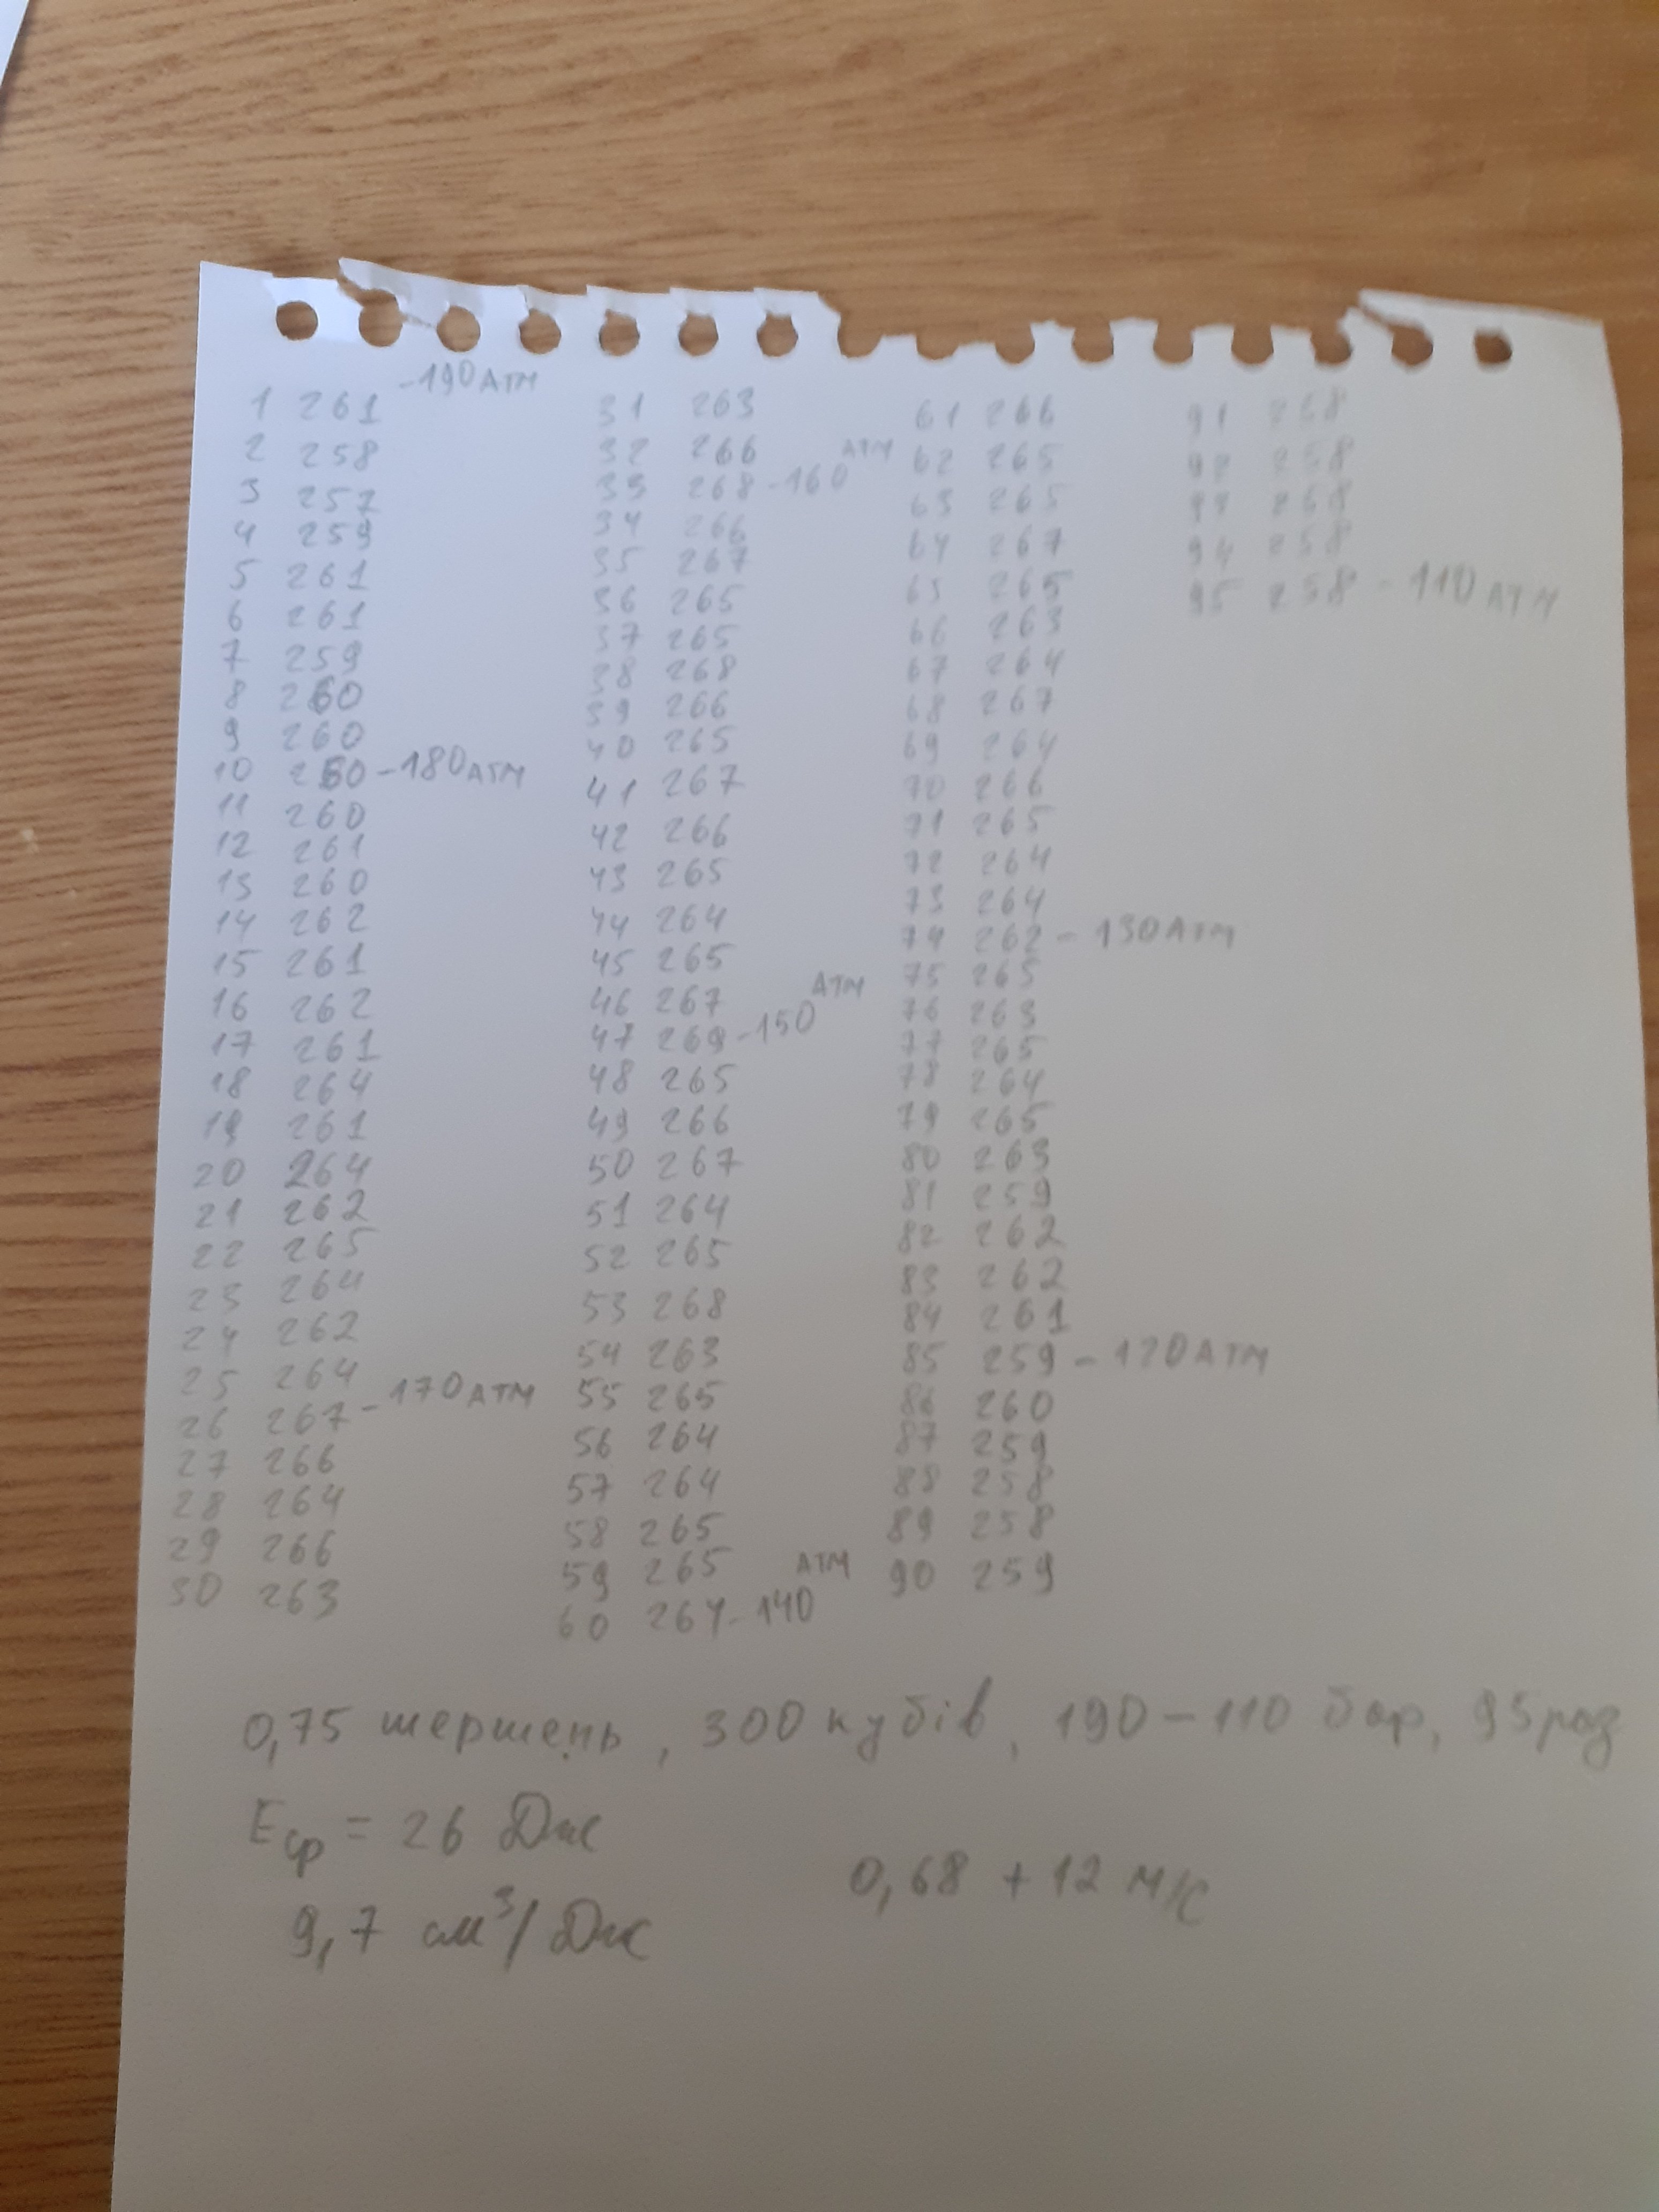 1 261 -190 АТМ
2 258
3 257
4 259
5 261
6 261
7 259
8 260
9 260
10 260 -180 АТМ
11 260
12 261
13 260
14 262
15 261
16 262
17 261
18 264
19 261
20 264
21 262
22 265
23 264
24 262
25 264
26 267 - 170 АТМ
27 266
28 264
29 266
30 263
31 263
32 266
33 268 -160 АТМ
34 266
35 267
36 265
37 265
38 268
39 266
40 265
41 267
42 266
43 265
44 264
45 265
46 267
47 269 -150 АТМ
48 265
49 266
50 267
51 264
52 265
53 268
54 263
55 265
56 264
57 264
58 265
59 265
60 264 -140 АТМ
61 266
62 265
63 265
64 267
65 265
66 263
67 264
68 267
69 264
70 266
71 265
72 264
73 264
74 262 - 130 АТМ
75 265
76 263
77 265
78 264
79 265
80 263
81 259
82 262
83 262
84 261
85 259 - 120 АТМ
86 260
87 259
88 258
89 258
90 259
91 258
92 258
93 258
94 258
95 258 - 110 АТМ
0,75 шершень, 300 кубів, 190-110 бар, 95 раз
Еср = 26 Дж
9,7 см³/Дж
0,68 + 12 м/с